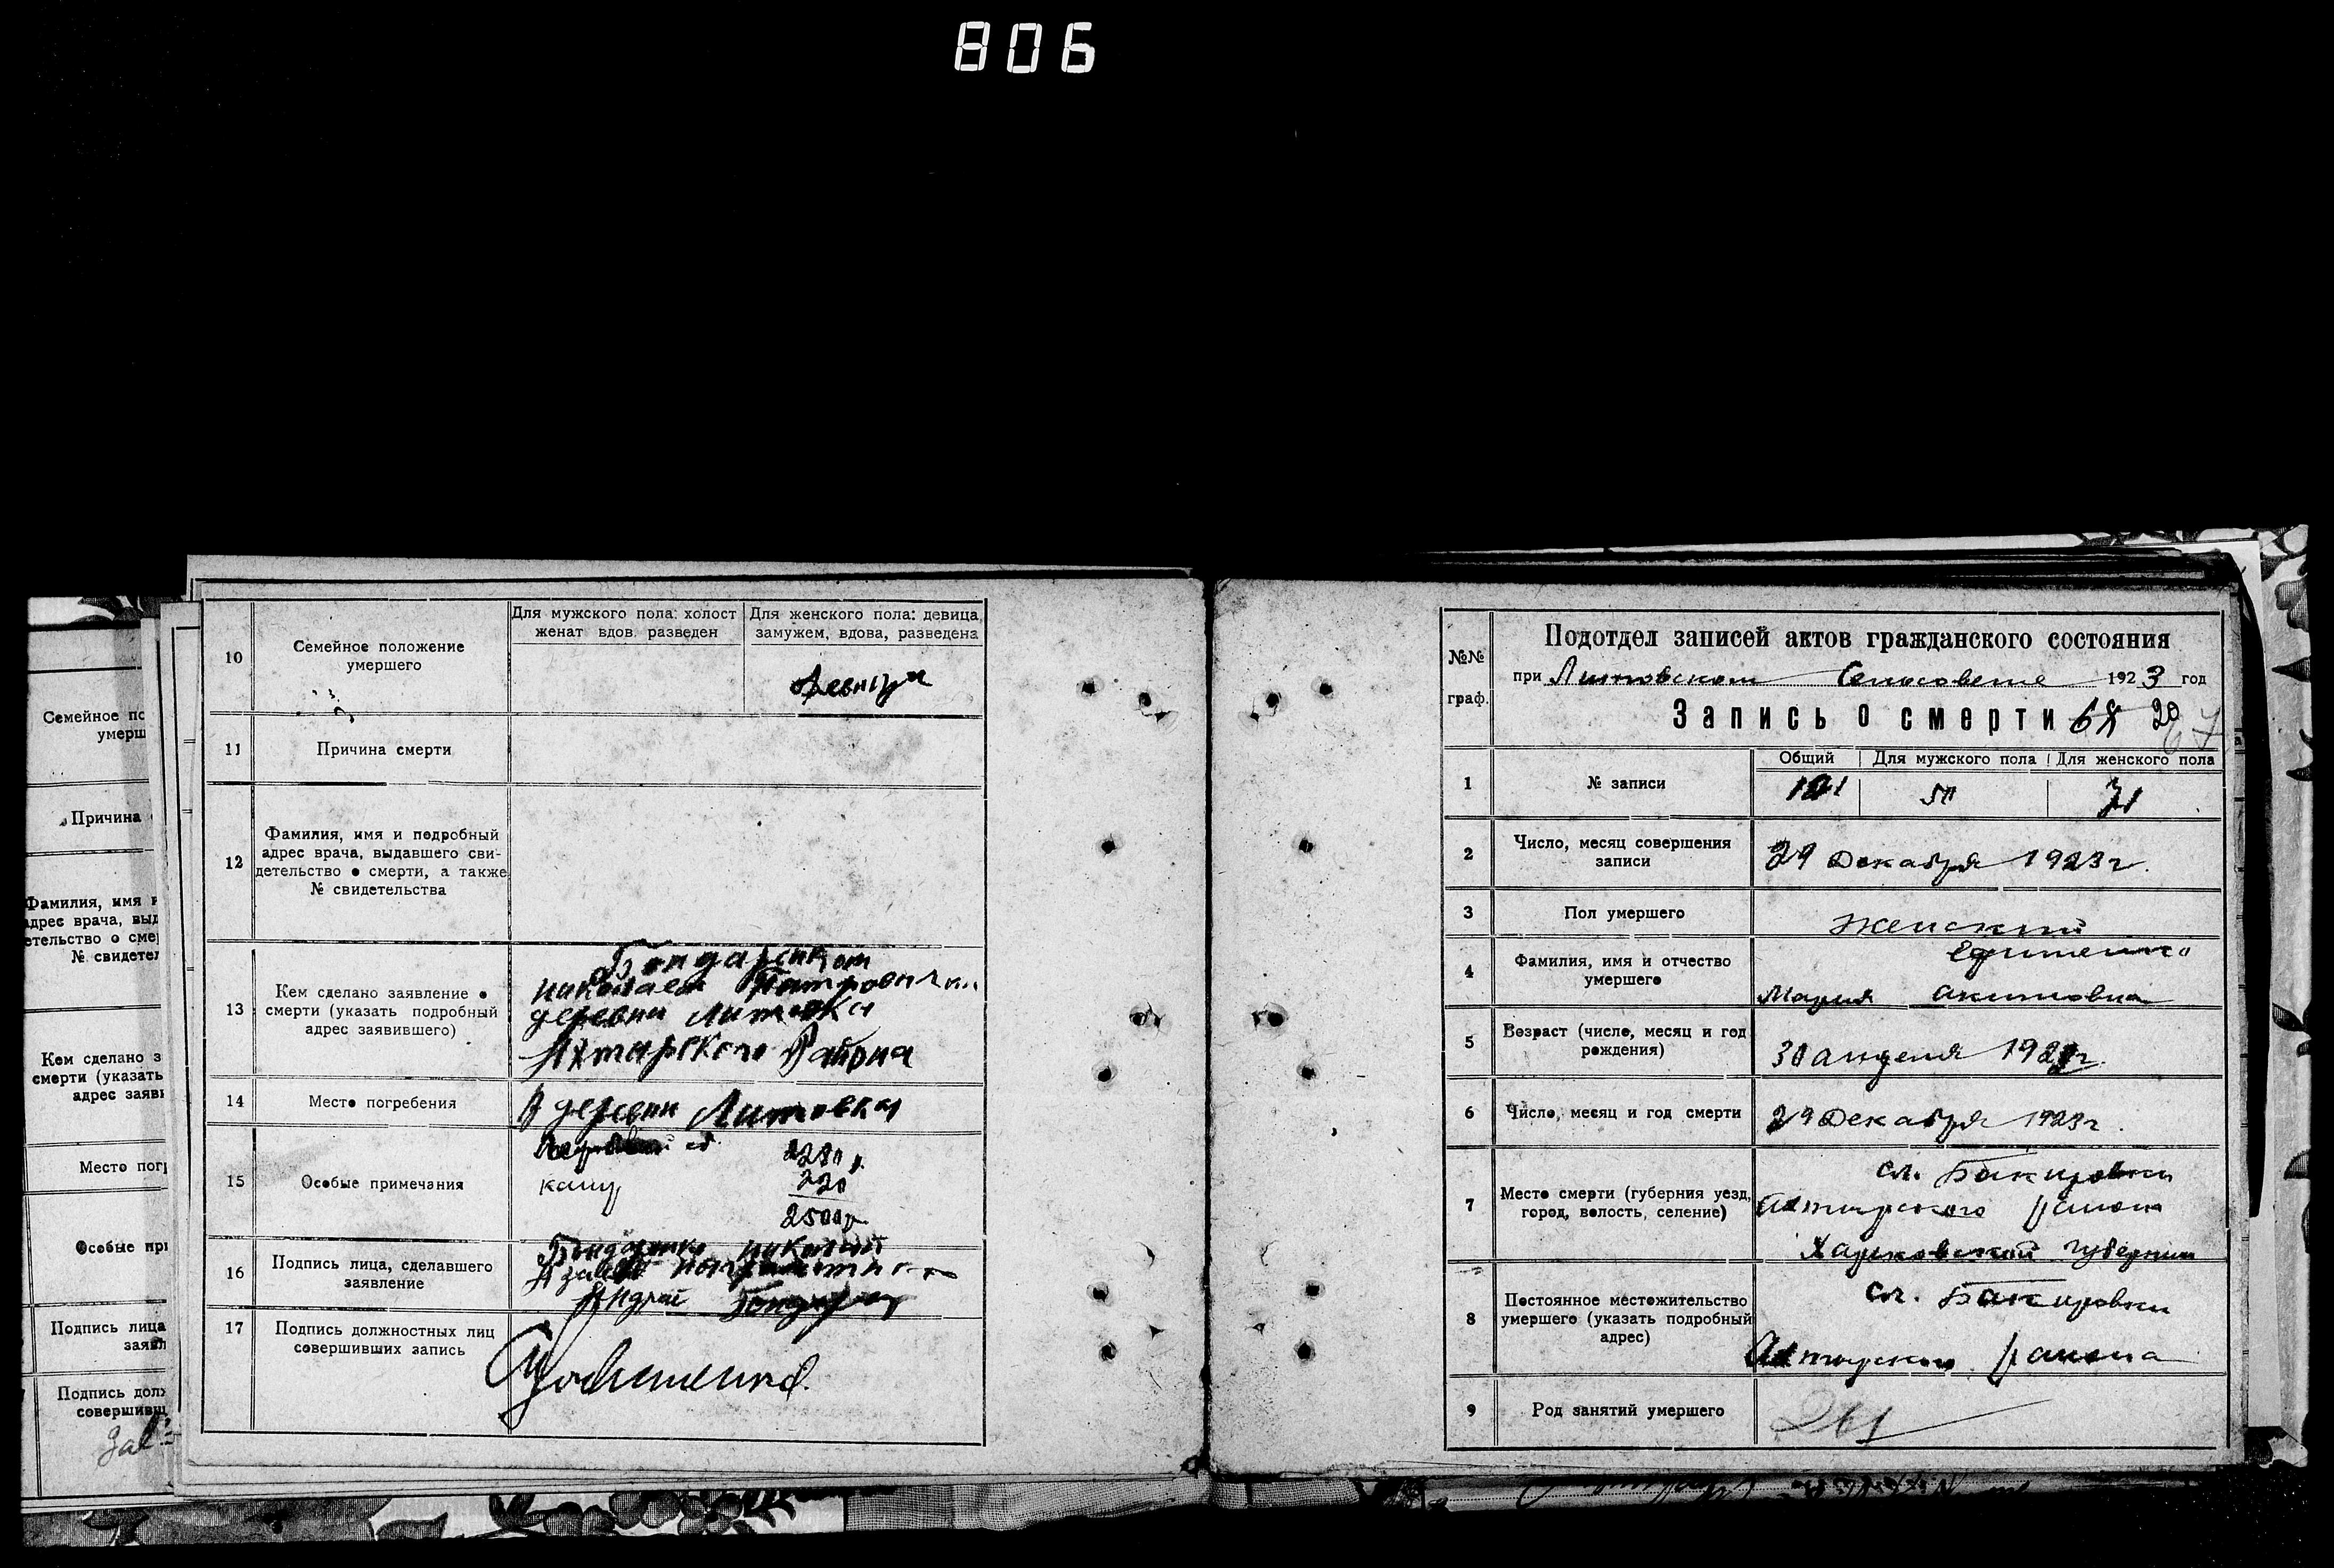 806
Семейное по
умерш
Причина
Фамилия, имя и
адрес врача, выд
етельство о смер
№ свидетел
Кем сделано з
смерти (указать
адрес заяв
Место пог
Особые при
Подпись лица
заявл
Подпись долж
совершивш
10
Семейное положение
умершего
Для мужского пола: холост
женат вдов разведен
Для женского пола: девица,
замужем, вдова, разведена
девица
11
Причина смерти
12
Фамилия, имя и подробный
адрес врача, выдавшего сви-
детельство о смерти, а также
№ свидетельства
13
Кем сделано заявление о
смерти (указать подробный
адрес заявившего)
Бондаренком
николаем
деревни Литовка
Ахтирского Района
14
Место погребения
В деревни Литовка
15
Особые примечания
2280 р.
220
2500р
16
Подпись лица, сделавшего
заявление
Бондаренко николай
Андрей
17
Подпись должностных лиц
совершивших запись
№№
граф.
Подотдел записей актов гражданского состояния
при Литовском Сельсовете 1923 год
Запись о смерти 68 20
67
Общий
Для мужского пола
Для женского пола
1
№ записи
121
50
71
2
Число, месяц совершения
записи
29 Декабря 1923г.
3
Пол умершего
женский
4
Фамилия, имя и отчество
умершего
Мария акимовна
5
Возраст (число, месяц и год
рождения)
30 апреля
6
Число, месяц и год смерти
29 Декабря 1923г.
7
Место смерти (губерния уезд,
город, волость, селение)
сл. Бакировки
Ахтирского района
Харковской губернии
8
Постоянное местожительство
умершего (указать подробный
адрес)
сл. Бакировки
Ахтирского района
9
Род занятий умершего